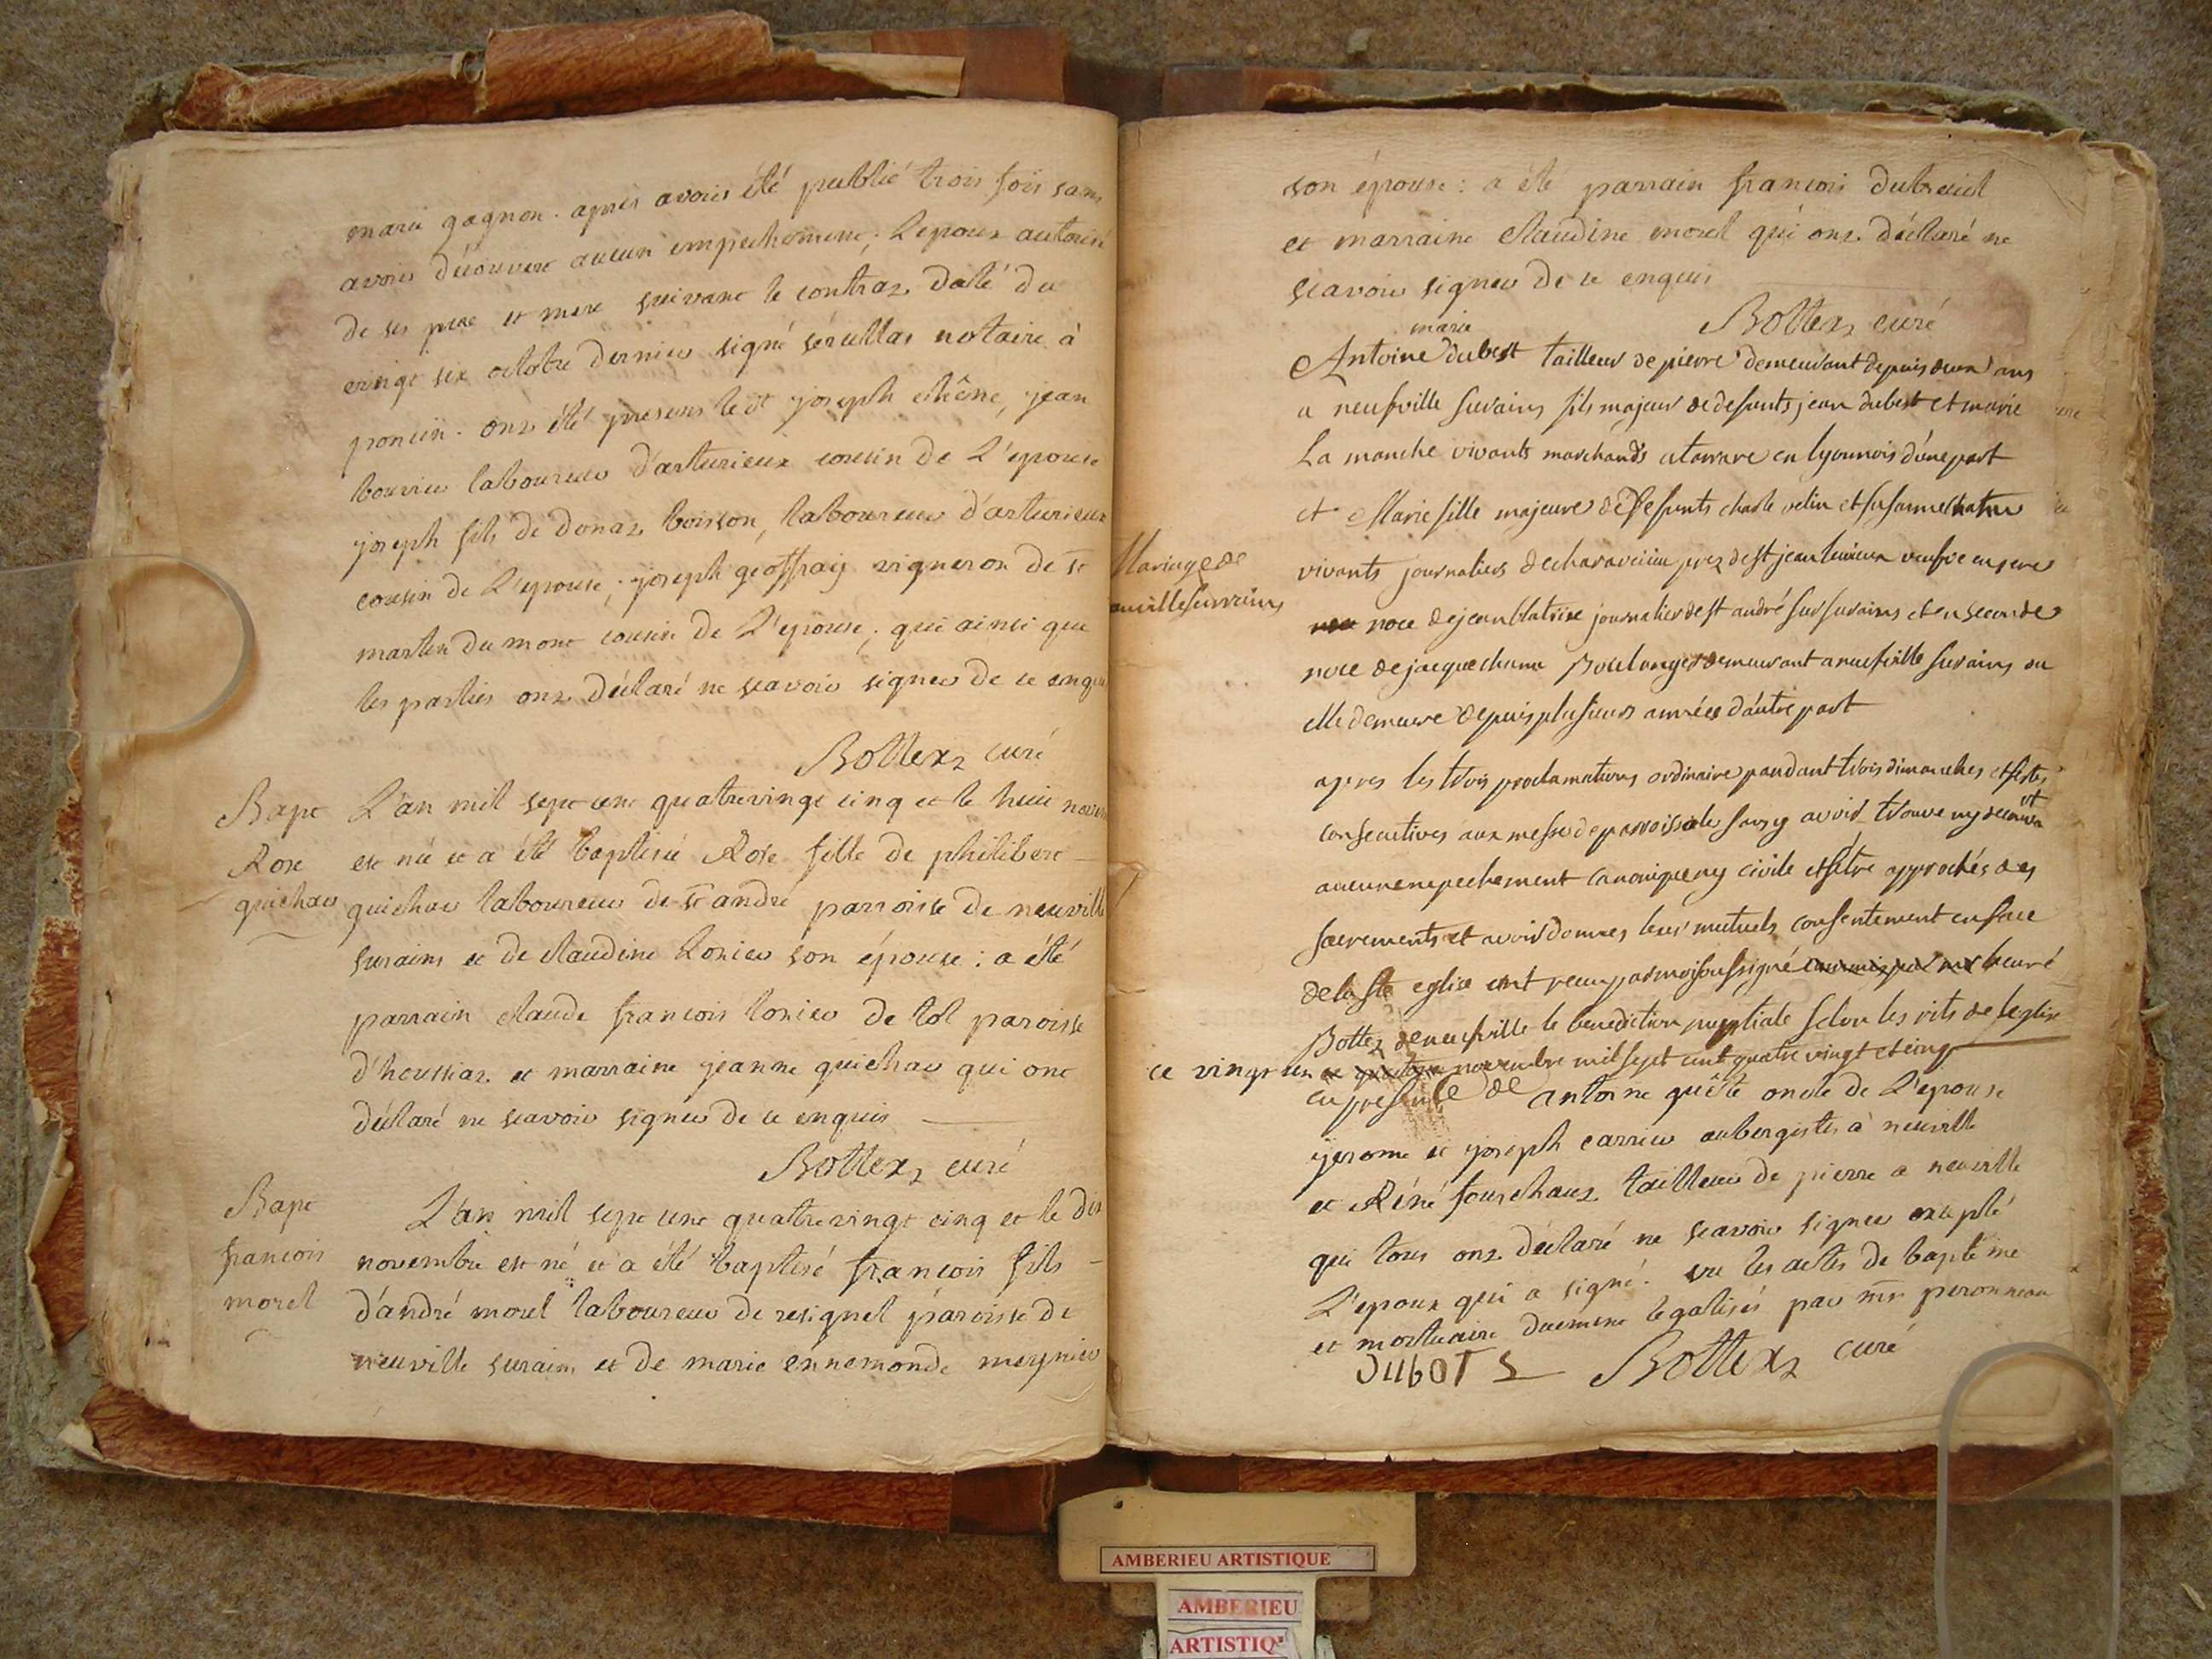 marie gagnon. apres avoir été publié trois fois sans
avoir découvert aucun empechement; L'epoux autorisé
de ses pere et mere suivant le contrat daté du
vingt six octobre dernier signé notaire à
poncin. ont été presens le dt joseph chêne, jean
bouvier laboureur d'arturieux cousin de L'epouse
joseph fils de donat boisson, laboureur d'arturieux
cousin de L'epouse; joseph géoffray vigneron de st
martin du mont cousin de L'epouse; qui ainsi que
les parties ont déclaré ne scavoir signer de ce enquis
Bottex curé
Bapt
Rose
guichar
L'an mil sept cent quatrevingt cinq et le huit novem
est née et a été baptisée Rose fille de philibert
guichar laboureur de st andré parroisse de neuville
surains et de claudine lorier son épouse: a été
parrain claude francois lorier de tol paroisse
d'houssiat et marraine jeanne guichar qui ont
déclaré ne scavoir signer de ce enquis
Bottex curé
Bapt
francois
morel
L'an mil sept cent quatrevingt cinq et le dix
novembre est né et a été baptisé francois fils
d'andré morel laboureur de resignel paroisse de
neuville surain et de marie énnemonde meynier
son épouse: a été parrain francois dubreuil
et marraine claudine morel qui ont déclaré ne
scavoir signer de ce enquis
Bottex curé
marie
Antoine dubost tailleur de pierre demeurant depuis deux ans
a neufville surains fils majeur de defunts jean dubost et marie
La manche vivants marchands a tarare en lyonnois d'une part
et Marie fille majeure de defunts charle velin et susanne
Mariage de
neuville surains
vivants journaliers de prez de st jean veufve en
noce de jean journalier de st andré sur surains et en seconde
noce de jacque Boulanger demeurant a neufville surains ou
elle demeure depuis plusieurs années d'autre part
apres les trois proclamations ordinaire pandant trois dimanches et festes
consecutives aux messe de parroissiale sans y avoir trouve ny decouvert
aucun enpechement canonique ny civile et s'etre approchés des
sacrements et avoir donnes leur mutuels consentement en face
de la ste eglise ont reçu par moi soussigné curé
Bottex de neufville le benediction nuptiale selon les rits de leglise
ce vingt un novembre mil sept cent quatre vingt et cinq
en presence de antoine quête oncle de L'epouse
jerome et joseph carrier aubergistes à neuville
et Réné fourchaux tailleur de pierre a neuville
qui tous ont déclaré ne scavoir signer excepté
L'epoux qui a signé. vu les actes de baptême
et mortuaire duement legalisés par mr peronneau
DUBOT S Bottex curé
AMBERIEU ARTISTIQUE
AMBERIEU
ARTISTIQ